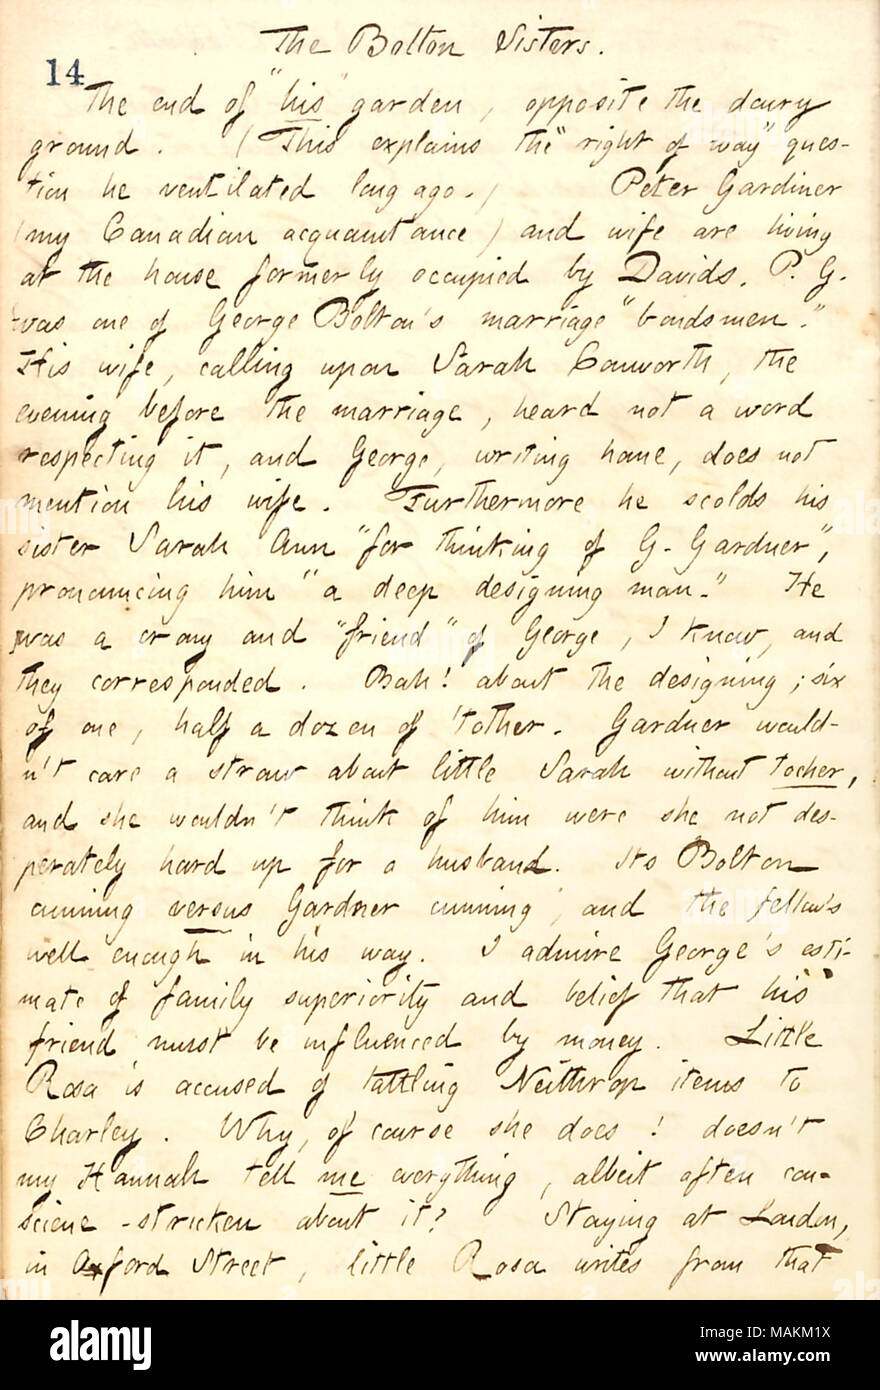 The Bolton Sisters.
14
The end of "his" garden, opposite the dairy
ground. (This explains the "right of way" ques-
tion he ventilated long ago.) Peter Gardiner
(my Canadian acquaintance) and wife are living
at the house formerly occupied by Davids. P. G.
was one of George Bolton's marriage "bondsmen."
His wife, calling upon Sarah Conworth, the
evening before the marriage, heard not a word
respecting it, and George, writing home, does not
mention his wife. Furthermore he scolds his
sister Sarah Ann "for thinking of G. Gardner",
pronouncing him "a deep designing man." He
was a crony and "friend" of George, I know, and
they corresponded. Bah! about the designing; six
of one, half a dozen of 'tother. Gardner would-
n't care a straw about little Sarah without tocher,
and she wouldn't think of him were she not des-
perately hard up for a husband. Its Bolton
cunning versus Gardner cunning, and the fellow's
well enough in his way. I admire George's esti-
mate of family superiority and belief that his
friend must be influenced by money. Little
Rosa is accused of tattling Neithrop items to
Charley. Why, of course she does! doesn't
my Hannah tell me everything, albeit often con-
science-stricken about it? Staying at London,
in Oxford Street, little Rosa writes from that
alamy
Image ID: MAKM1X
www.alamy.com